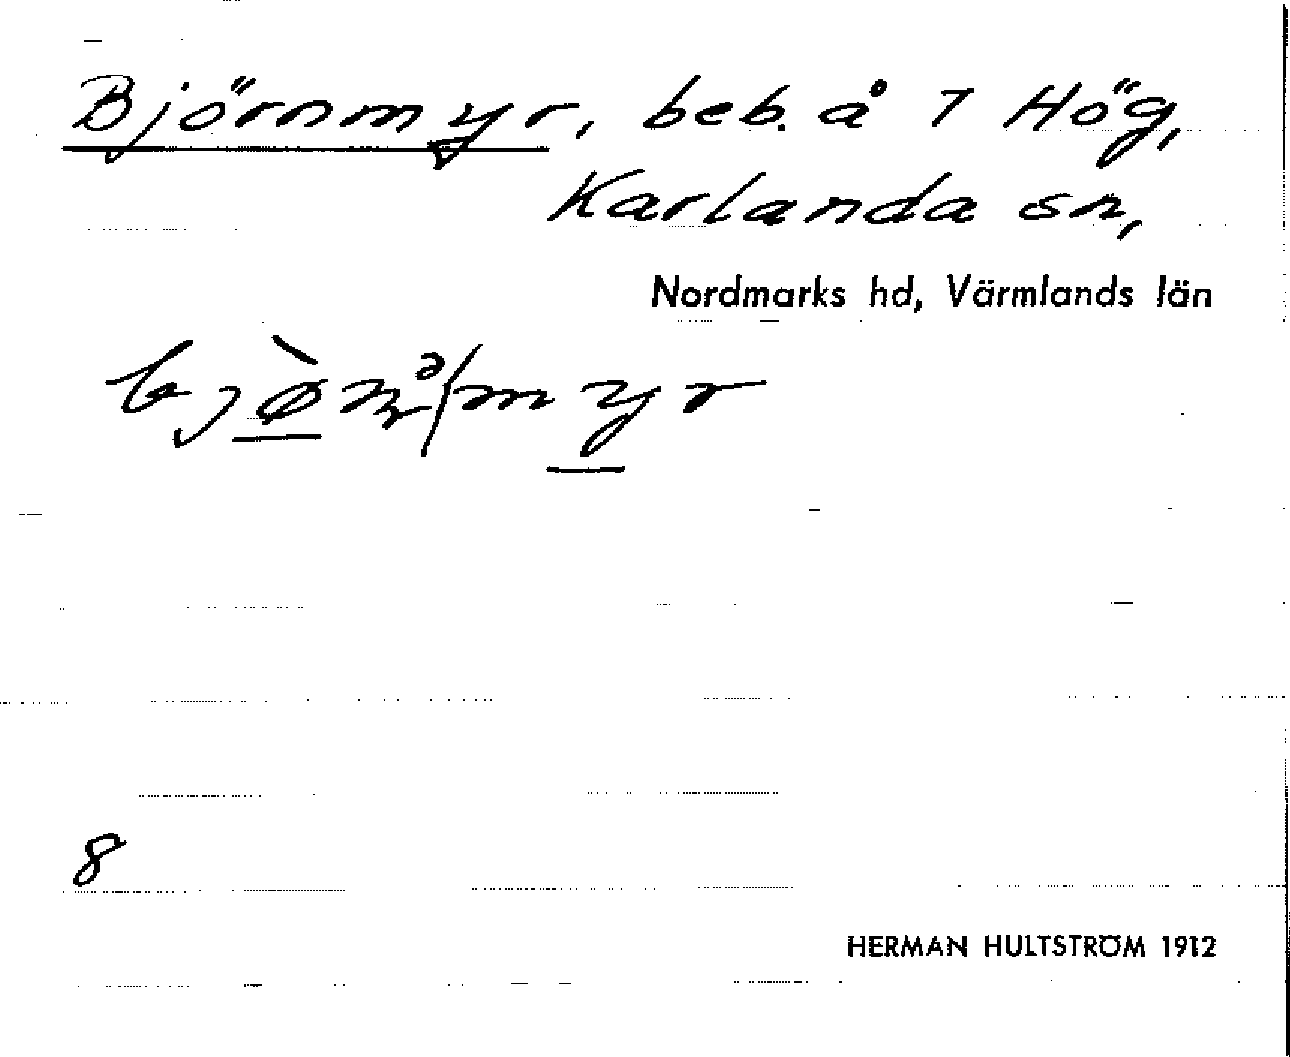 Björnmyr, beb. å 7 Hög,
Karlanda sn,
Nordmarks hd, Värmlands län
8
HERMAN HULTSTRÖM 1912